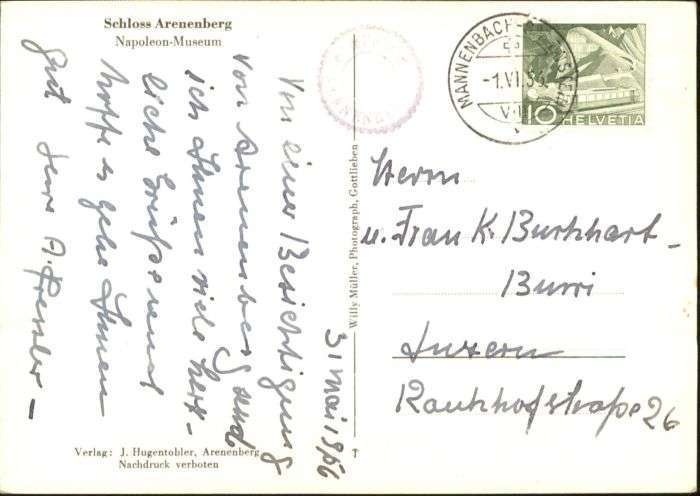 Schloss Arenenberg
Napoleon-Museum
31 Mai 1956
Von einer Besichtigung
von Arenenberg send
ich Ihnen viele herz-
liche Grüße und
hoffe es gehe Ihnen
gut Ihre A.
Verlag: J. Hugentobler, Arenenberg
Nachdruck verboten
Willy Müller, Photograph, Gottlieben
MANNENBACH-
-1.VI.56
10 HELVETIA
Herrn
u. Frau K. Burkhart-
Burri
Luzern
Rankhofstraße 26